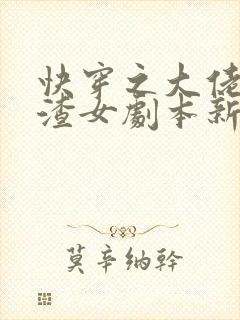 快穿之大佬
渣女劇本新
莫辛纳幹